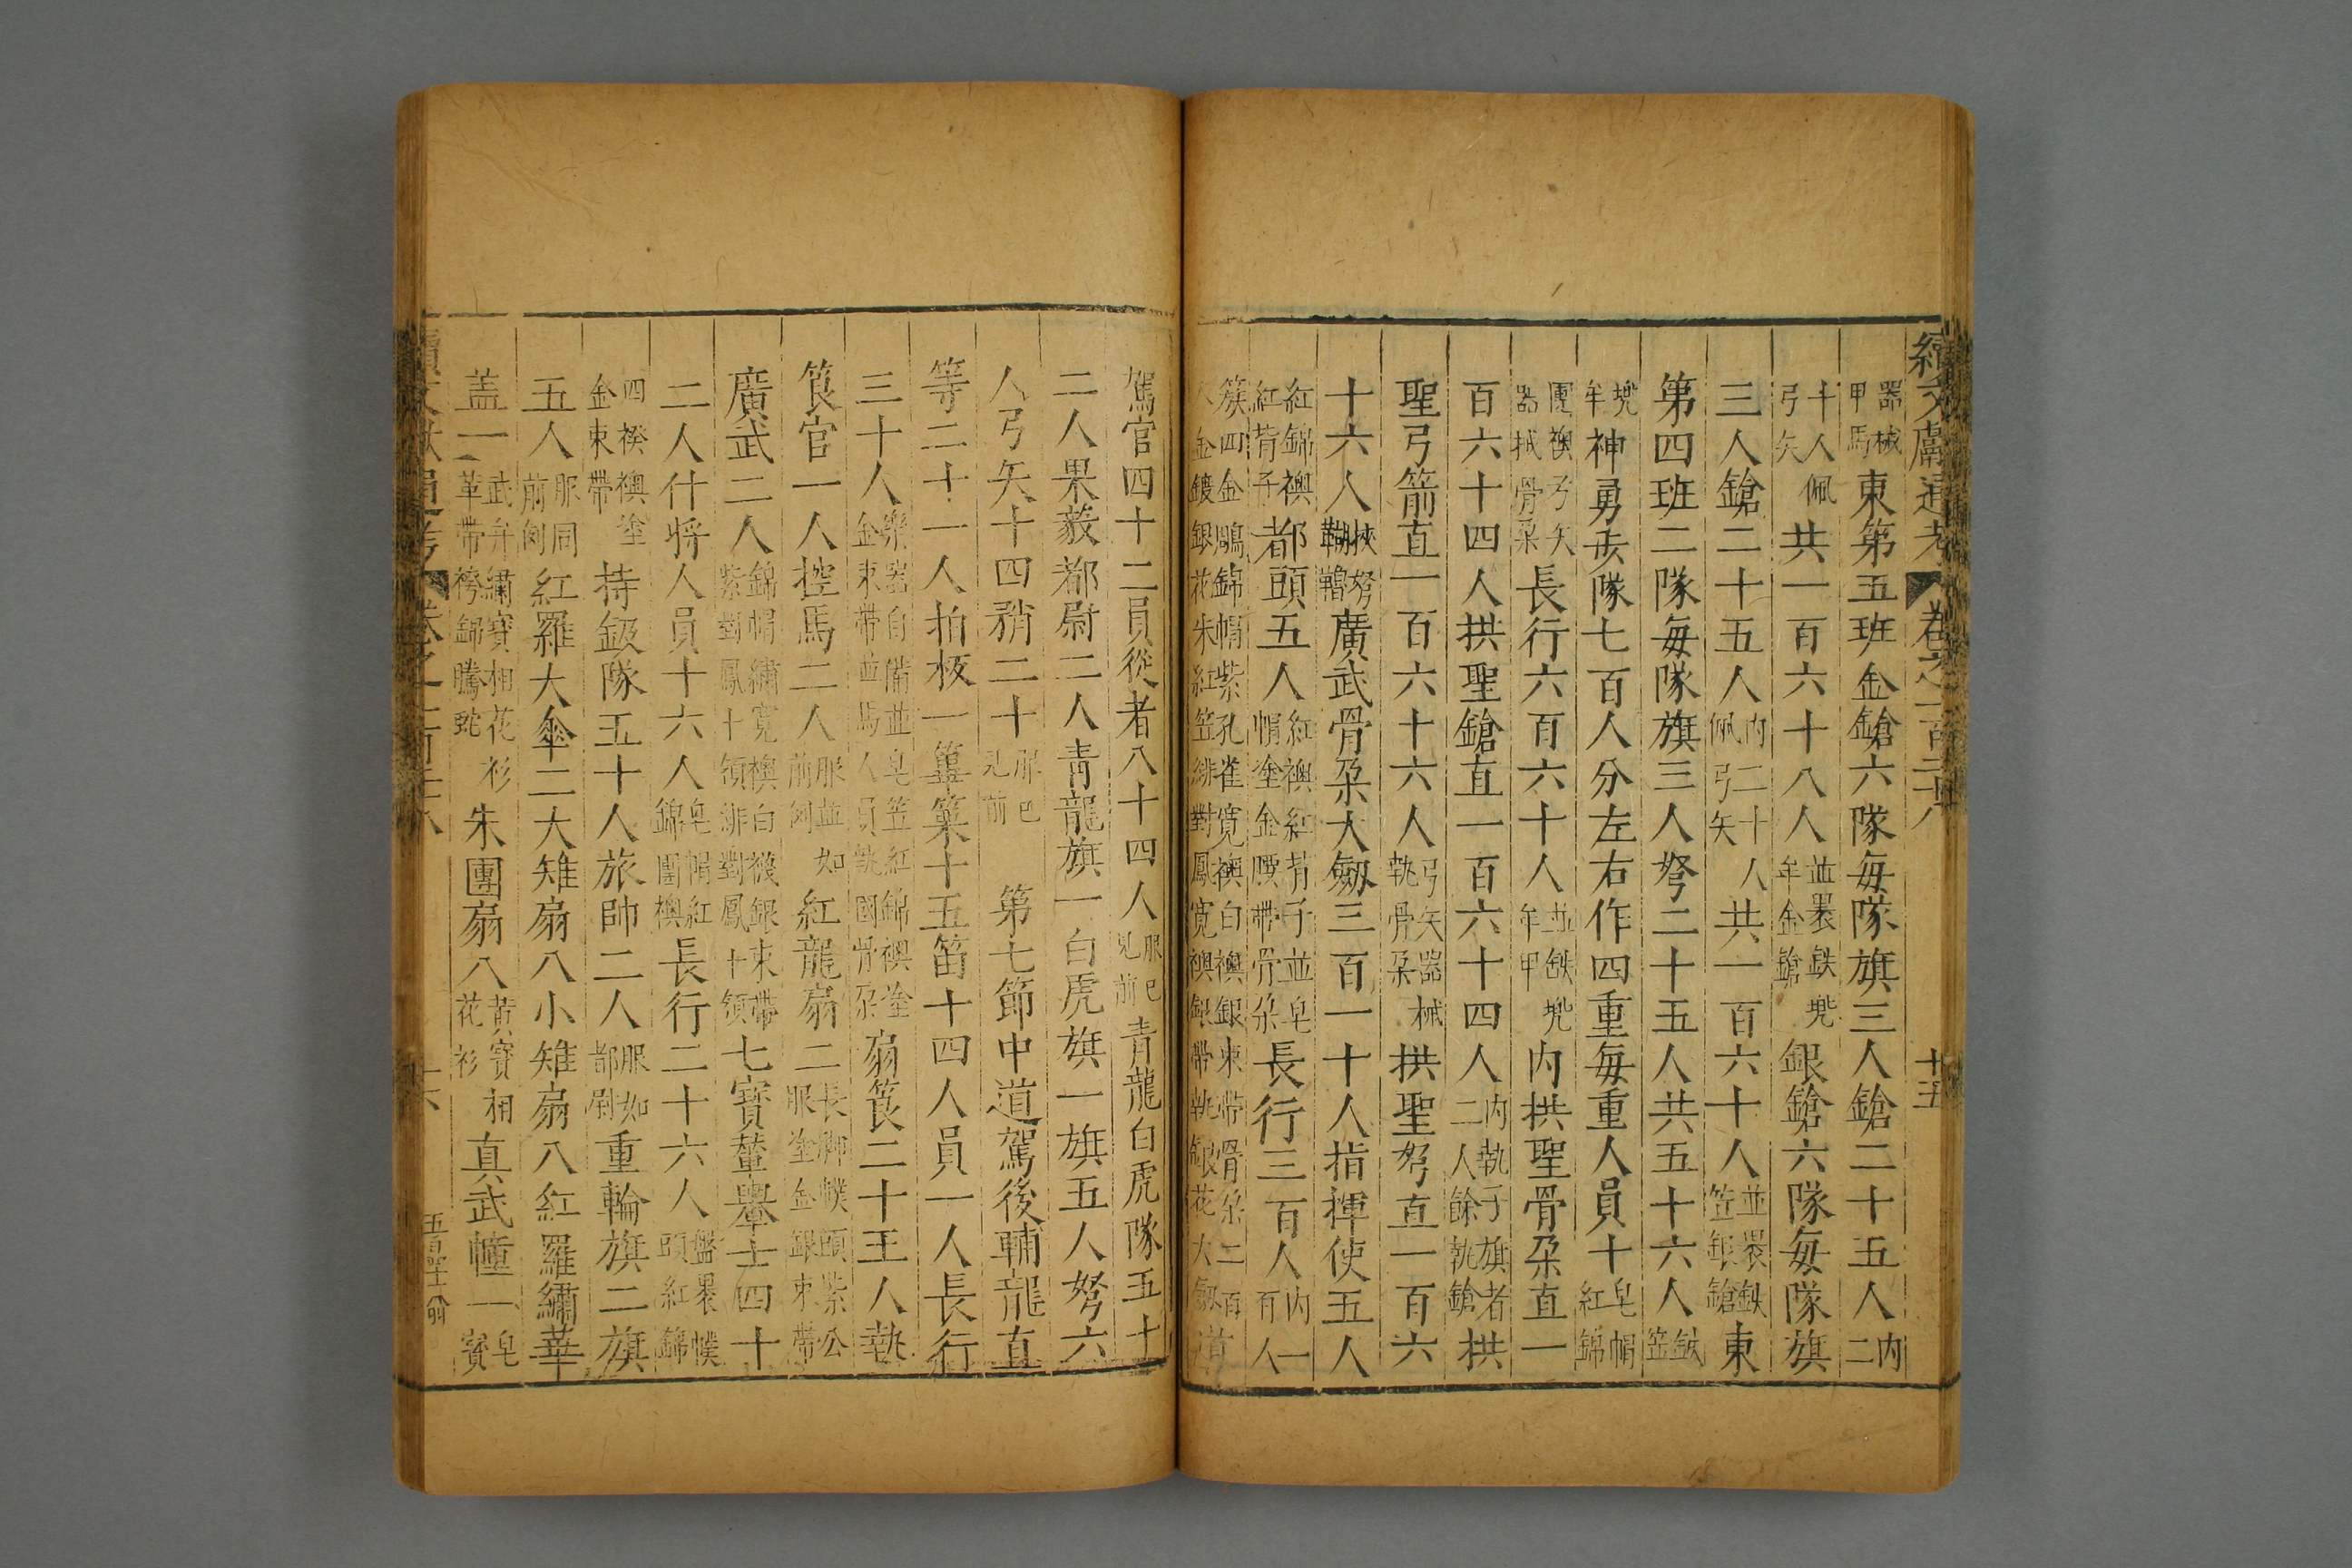 續文獻通考 卷之一百二十八 十五
器械甲馬東第五班金鎗六隊每隊旗三人鎗二十五人內二
十人佩弓矢共一百六十八人並褁鉄兠牟金鎗銀鎗六隊每隊旗
三人鎗二十五人內二十人佩弓矢共一百六十人並褁鉄笠銀鎗東
第四班二隊每隊旗三人弩二十五人共五十六人鉄笠
兠牟神勇步隊七百人分左右作四重每重人員十皂帽紅錦
團襖弓矢器械骨朶長行六百六十人並鉄兠牟甲內拱聖骨朶直一
百六十四人拱聖鎗直一百六十四人內執子旗者二人餘執鎗拱
聖弓箭直一百六十六人弓矢器械執骨朶拱聖弩直一百六
十六人挾弩鞬韜廣武骨朶大劔三百一十人指揮使五人
紅錦襖紅背子都頭五人紅襖紅背子並皂帽塗金腰帶骨朶長行三百人內一百人
簇四金鵰錦帽紫孔雀寛襖白襖銀束帶骨朶二百人金鍍銀花朱紅笠緋對鳳寛襖銀帶執銀花大劔道
駕官四十二員從者八十四人服巳見前青龍白虎隊五十
二人果毅都尉二人青龍旗一白虎旗一旗五人弩六
人弓矢十四矟二十服巳見前第七節中道駕後輔龍直
等二十一人拍板一篳篥十五笛十四人員一人長行
三十人樂器自備並皂笠紅錦襖塗金束帶並馬人員執國骨朶扇筤二十王人執
筤官一人控馬二人服並如前例紅龍扇二長脚幞頭紫公服塗金銀束帶
廣武二人錦帽繡寛襖白襪銀束帶紫對鳳十領緋對鳳十領七寳輦轝士四十
二人什將人員十六人皂帽紅錦團襖長行二十六人盤褁幞頭紅錦
四䙆襖塗金束帶持鈒隊五十人旅帥二人服如都尉重輪旗二旗
五人服同前例紅羅大傘二大雉扇八小雉扇八紅羅繡華
盖一武弁繡寳相花衫革帶袴錦騰蛇朱團扇八黄寳相花衫真武幢一皂寳